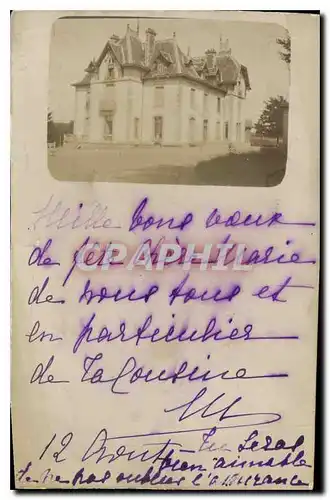 Mille bons vœux
de feu chère Marie
de nous tous et
en particulier
de Ta Cousine
12 Août Tu seras
bien aimable
de ne pas oublier l'assurance
CARTHAPHILE.COM